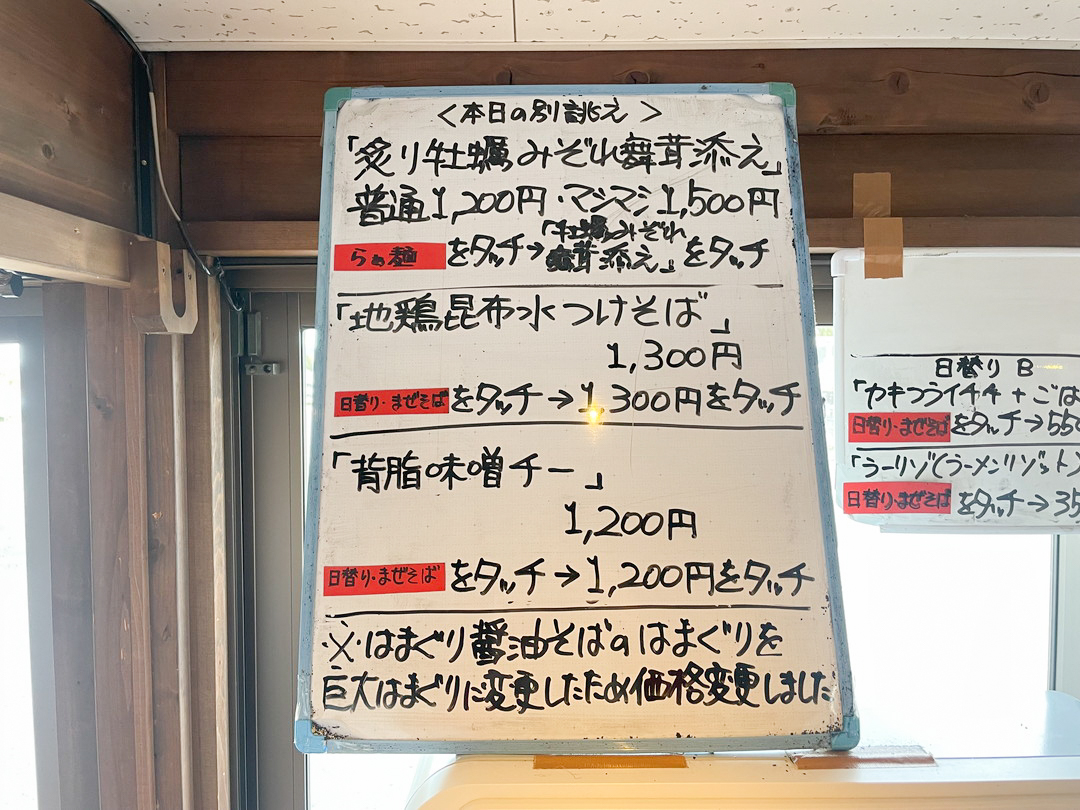 <本日の別誂え>
「炙り牡蠣みぞれ舞茸添え」
普通1,200円・マシマシ1,500円
らぁ麺をタッチ→「牡蠣みぞれ舞茸添え」をタッチ
「地鶏昆布水つけそば」
1,300円
日替り・まぜそばをタッチ→1,300円をタッチ
「背脂味噌チー」
1,200円
日替り・まぜそばをタッチ→1,200円をタッチ
※はまぐり醤油そばのはまぐりを
巨大はまぐりに変更したため価格変更しました
日替り B
「カキフライ4ケ+ごは
日替り・まぜそばをタッチ→550
「ラーリゾ(ラーメンリゾット)
日替り・まぜそばをタッチ→35